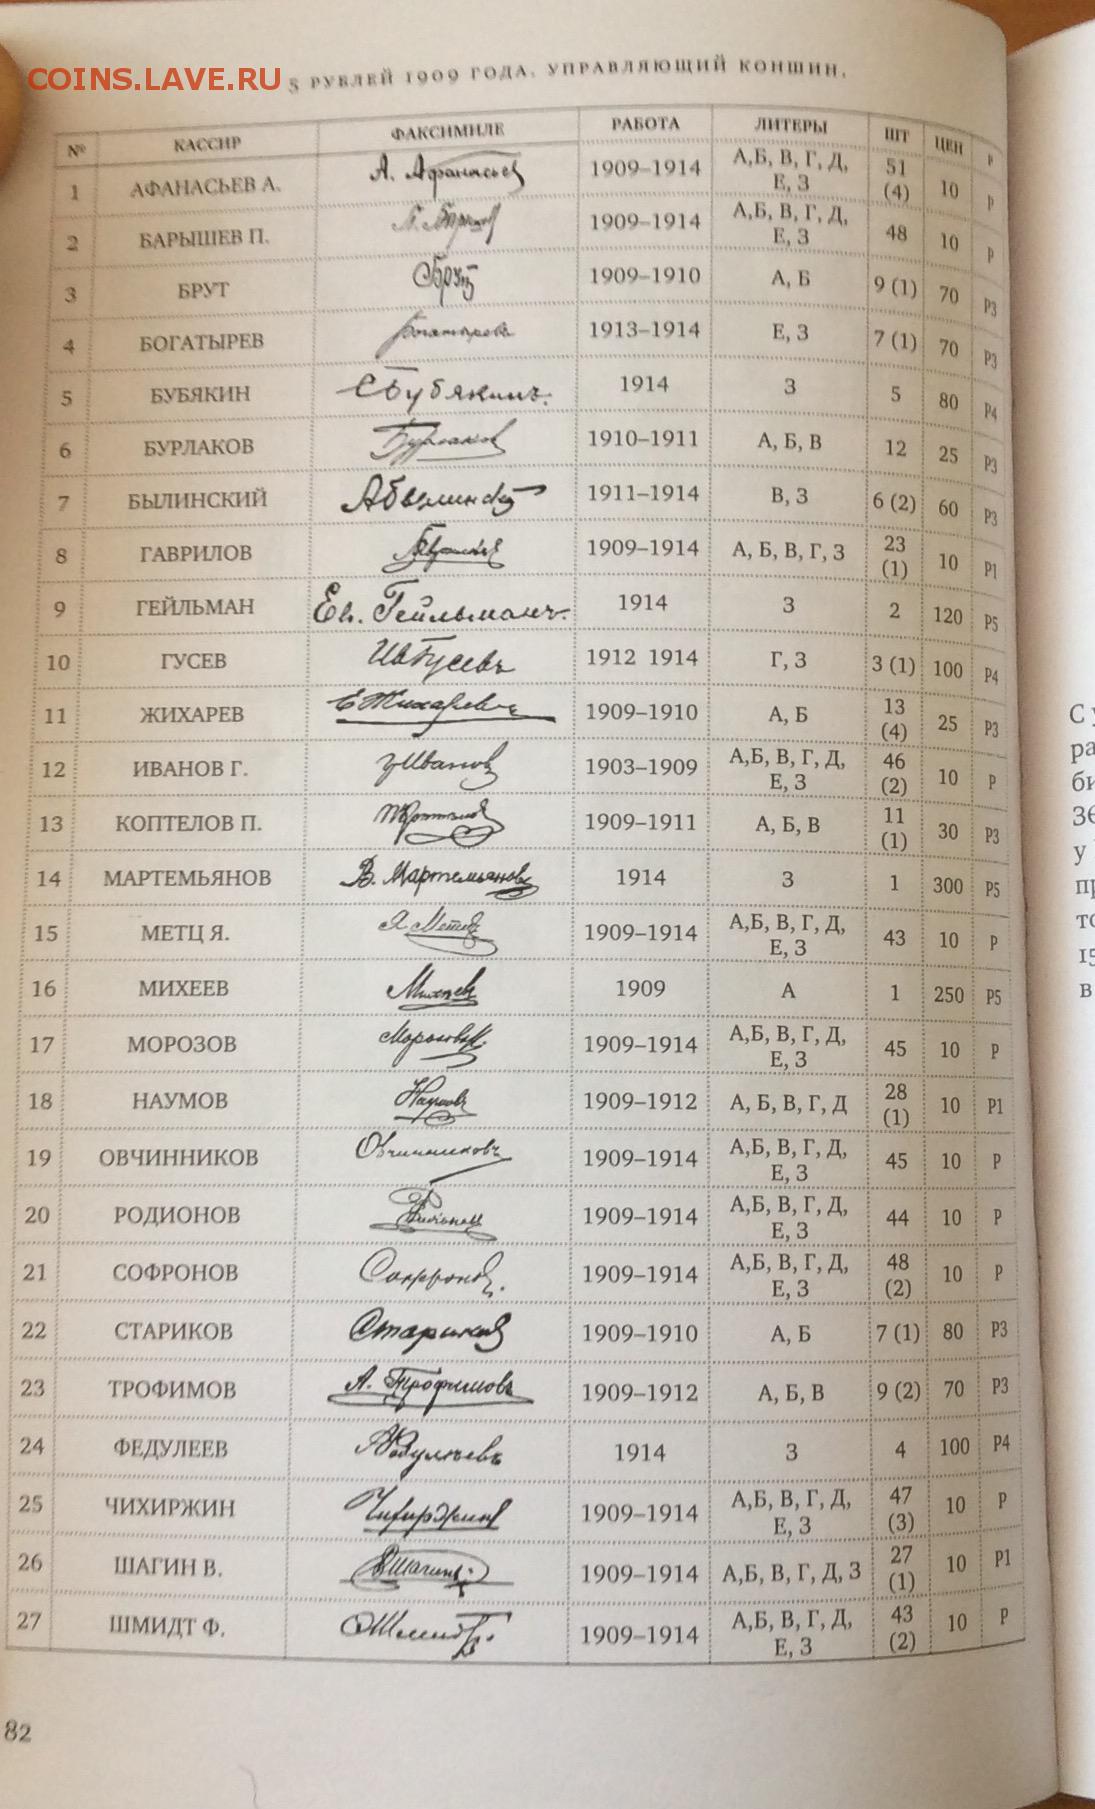 COINS.LAVE.RU
5 РУБЛЕЙ 1909 ГОДА. УПРАВЛЯЮЩИЙ КОНШИН.
№ КАССИР ФАКСИМИЛЕ РАБОТА ЛИТЕРЫ ШТ ЦЕН Р
1 АФАНАСЬЕВ А. А. Афанасьев 1909–1914 А,Б, В, Г, Д, 51 10 Р
Е, З (4)
2 БАРЫШЕВ П. 1909–1914 А,Б, В, Г, Д, 48 10 Р
Е, З
3 БРУТ 1909–1910 А, Б 9 (1) 70 Р3
4 БОГАТЫРЕВ 1913–1914 Е, З 7 (1) 70 Р3
5 БУБЯКИН СБубякинъ. 1914 З 5 80 Р4
6 БУРЛАКОВ Бурлаков 1910–1911 А, Б, В 12 25 Р3
7 БЫЛИНСКИЙ 1911–1914 В, З 6 (2) 60 Р3
8 ГАВРИЛОВ 1909–1914 А, Б, В, Г, З 23 10 Р1
(1)
9 ГЕЙЛЬМАН Ев. Гейльманъ. 1914 З 2 120 Р5
10 ГУСЕВ ИвГусевъ 1912 1914 Г, З 3 (1) 100 Р4
11 ЖИХАРЕВ ЕЖихаревъ 1909–1910 А, Б 13 25 Р3
(4)
12 ИВАНОВ Г. ГИванов 1903–1909 А,Б, В, Г, Д, 46 10 Р
Е, З (2)
13 КОПТЕЛОВ П. 1909–1911 А, Б, В 11 30 Р3
(1)
14 МАРТЕМЬЯНОВ В. Мартемьяновъ 1914 З 1 300 Р5
15 МЕТЦ Я. Я. Метцъ 1909–1914 А,Б, В, Г, Д, 43 10 Р
Е, З
16 МИХЕЕВ Михеевъ 1909 А 1 250 Р5
17 МОРОЗОВ 1909–1914 А,Б, В, Г, Д, 45 10 Р
Е, З
18 НАУМОВ Наумовъ 1909–1912 А, Б, В, Г, Д 28 10 Р1
(1)
19 ОВЧИННИКОВ Овчинниковъ 1909–1914 А,Б, В, Г, Д, 45 10 Р
Е, З
20 РОДИОНОВ 1909–1914 А,Б, В, Г, Д, 44 10 Р
Е, З
21 СОФРОНОВ Софронов. 1909–1914 А,Б, В, Г, Д, 48 10 Р
Е, З (2)
22 СТАРИКОВ Стариков 1909–1910 А, Б 7 (1) 80 Р3
23 ТРОФИМОВ А. Трофимовъ 1909–1912 А, Б, В 9 (2) 70 Р3
24 ФЕДУЛЕЕВ 1914 З 4 100 Р4
25 ЧИХИРЖИН Чихиржин 1909–1914 А,Б, В, Г, Д, 47 10 Р
Е, З (3)
26 ШАГИН В. ВШагинъ 1909–1914 А,Б, В, Г, Д, З 27 10 Р1
(1)
27 ШМИДТ Ф. 1909–1914 А,Б, В, Г, Д, 43 10 Р
Е, З (2)
82